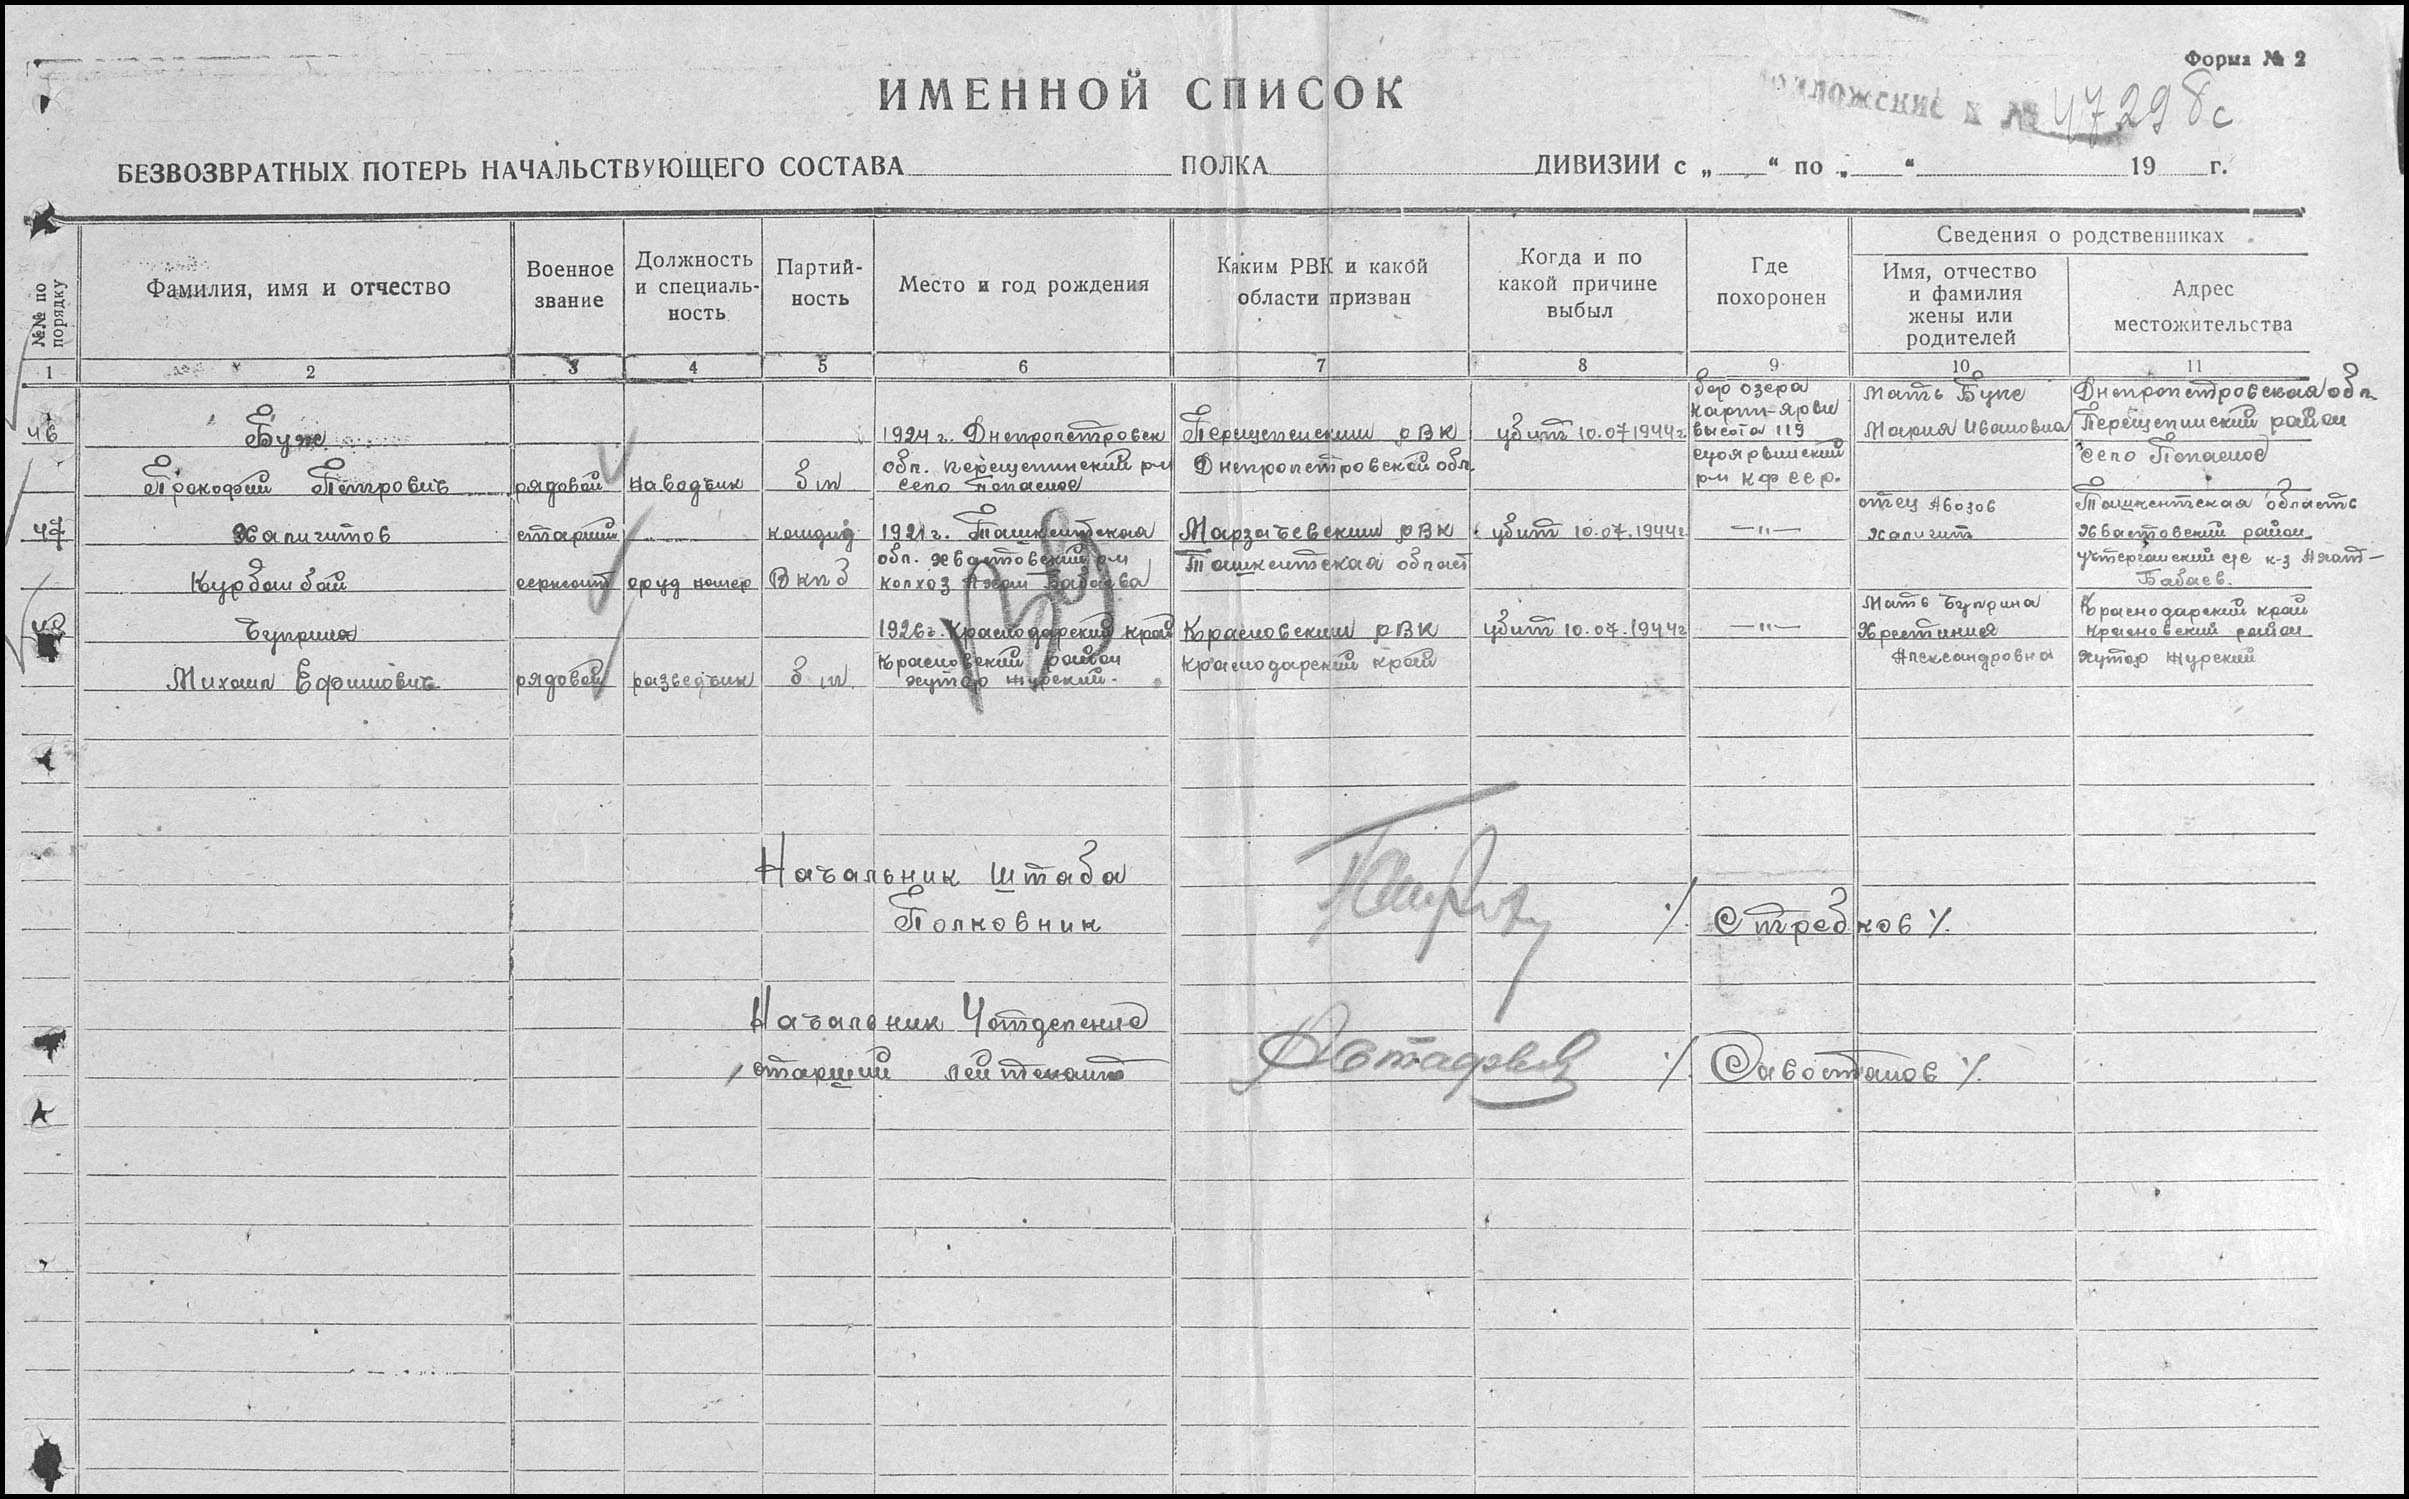 Форма № 2
ИМЕННОЙ СПИСОК
Приложение к № 47298с
БЕЗВОЗВРАТНЫХ ПОТЕРЬ НАЧАЛЬСТВУЮЩЕГО СОСТАВА ПОЛКА ДИВИЗИИ с „ “ по „ “ 19 г.
№№ по порядку
Фамилия, имя и отчество
Военное звание
Должность и специальность
Партийность
Место и год рождения
Каким РВК и какой области призван
Когда и по какой причине выбыл
Где похоронен
Сведения о родственниках
Имя, отчество и фамилия жены или родителей
Адрес местожительства
1 2 3 4 5 6 7 8 9 10 11
46
Буж
Прокофий Петрович
рядовой
наводчик
б/п
1924 г. Днепропетровск
обл. Перещепинский р-н
село Попасное
Перещепенским РВК
Днепропетровской обл.
убит 10.07.1944г
озера
Карпи-Ярви
высота 119
Суоярвинский
р-н КФССР.
Мать
Мария Ивановна
Днепропетровская обл.
Перещепинский район
село Попасное
47
Халигитов
Курбанбай
старший
сержант
оруд номер
кандид
ВКПб
1921г. Ташкентская
обл. Хвастовский р-н
колхоз Ахан Бабаева
Марзачевским РВК
Ташкентская област
убит 10.07.1944г
—"—
отец Авозов
Халигит
Ташкентская область
Хвастовский район
с/с к-з
Бабаев.
48
Чуприна
Михаил Ефимович
рядовой
разведчик
б/п
1926г. Краснодарский край
Красновский район
хутор Журский.
Красновским РВК
Краснодарский край
убит 10.07.1944г
—"—
Мать Чуприна
Хрестиния
Александровна
Краснодарский край
Красновский район
хутор Журский
Начальник штаба
Полковник
/. Стребков /.
Начальник 4 отделение
старший лейтенант
/. Савостанов /.